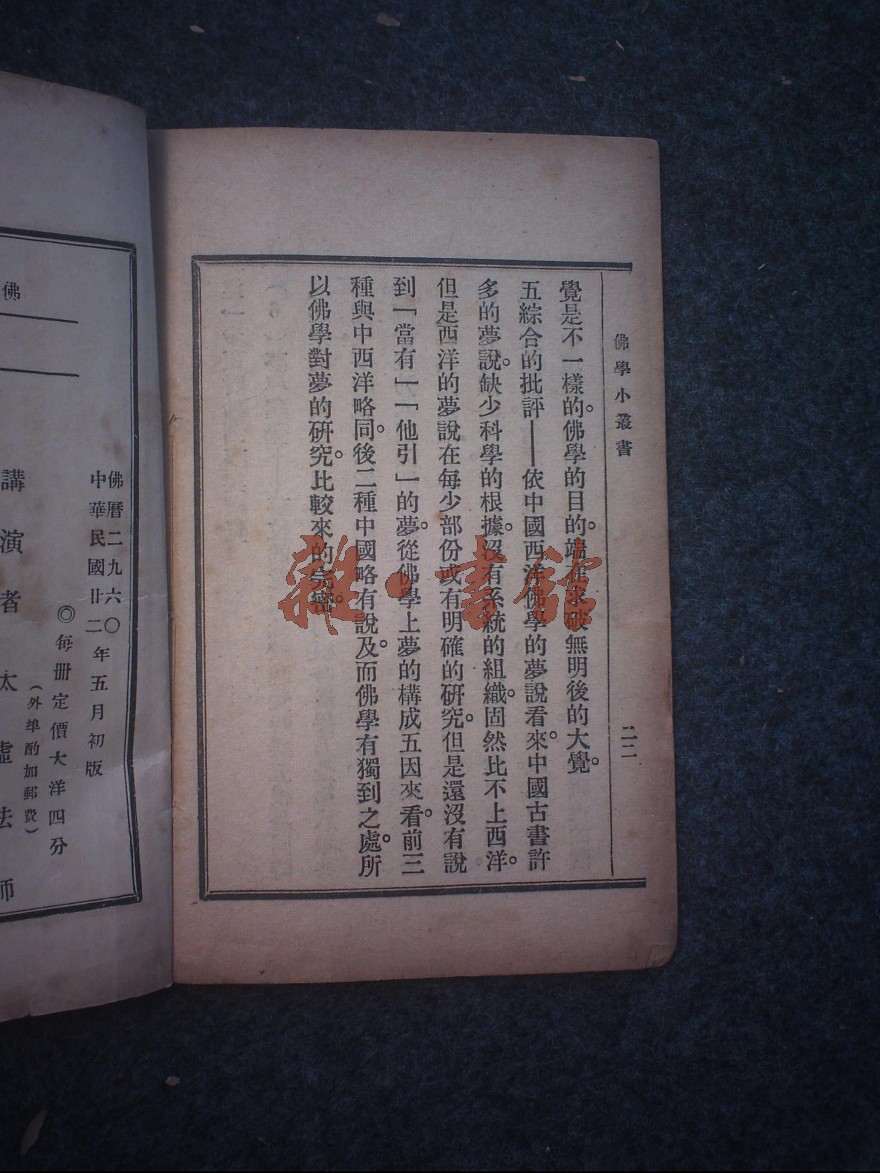 佛學小叢書
二二
覺是不一樣的。佛學的目的。端在求破無明後的大覺。
五綜合的批評——依中國西洋佛學的夢說看來。中國古書許
多的夢說。缺少科學的根據。沒有系統的組織。固然比不上西洋。
但是西洋的夢說在每少部份或有明確的研究。但是還沒有說
到「當有」「他引」的夢。從佛學上夢的構成五因來看。前三
種與中西洋略同。後二種中國略有說及。而佛學有獨到之處。所
以佛學對夢的研究。比較來的完密。
雜·書館
佛曆二九六〇年五月初版
中華民國廿二
◎每册定價大洋四分
(外埠酌加郵費)
講演者太虛法師
佛